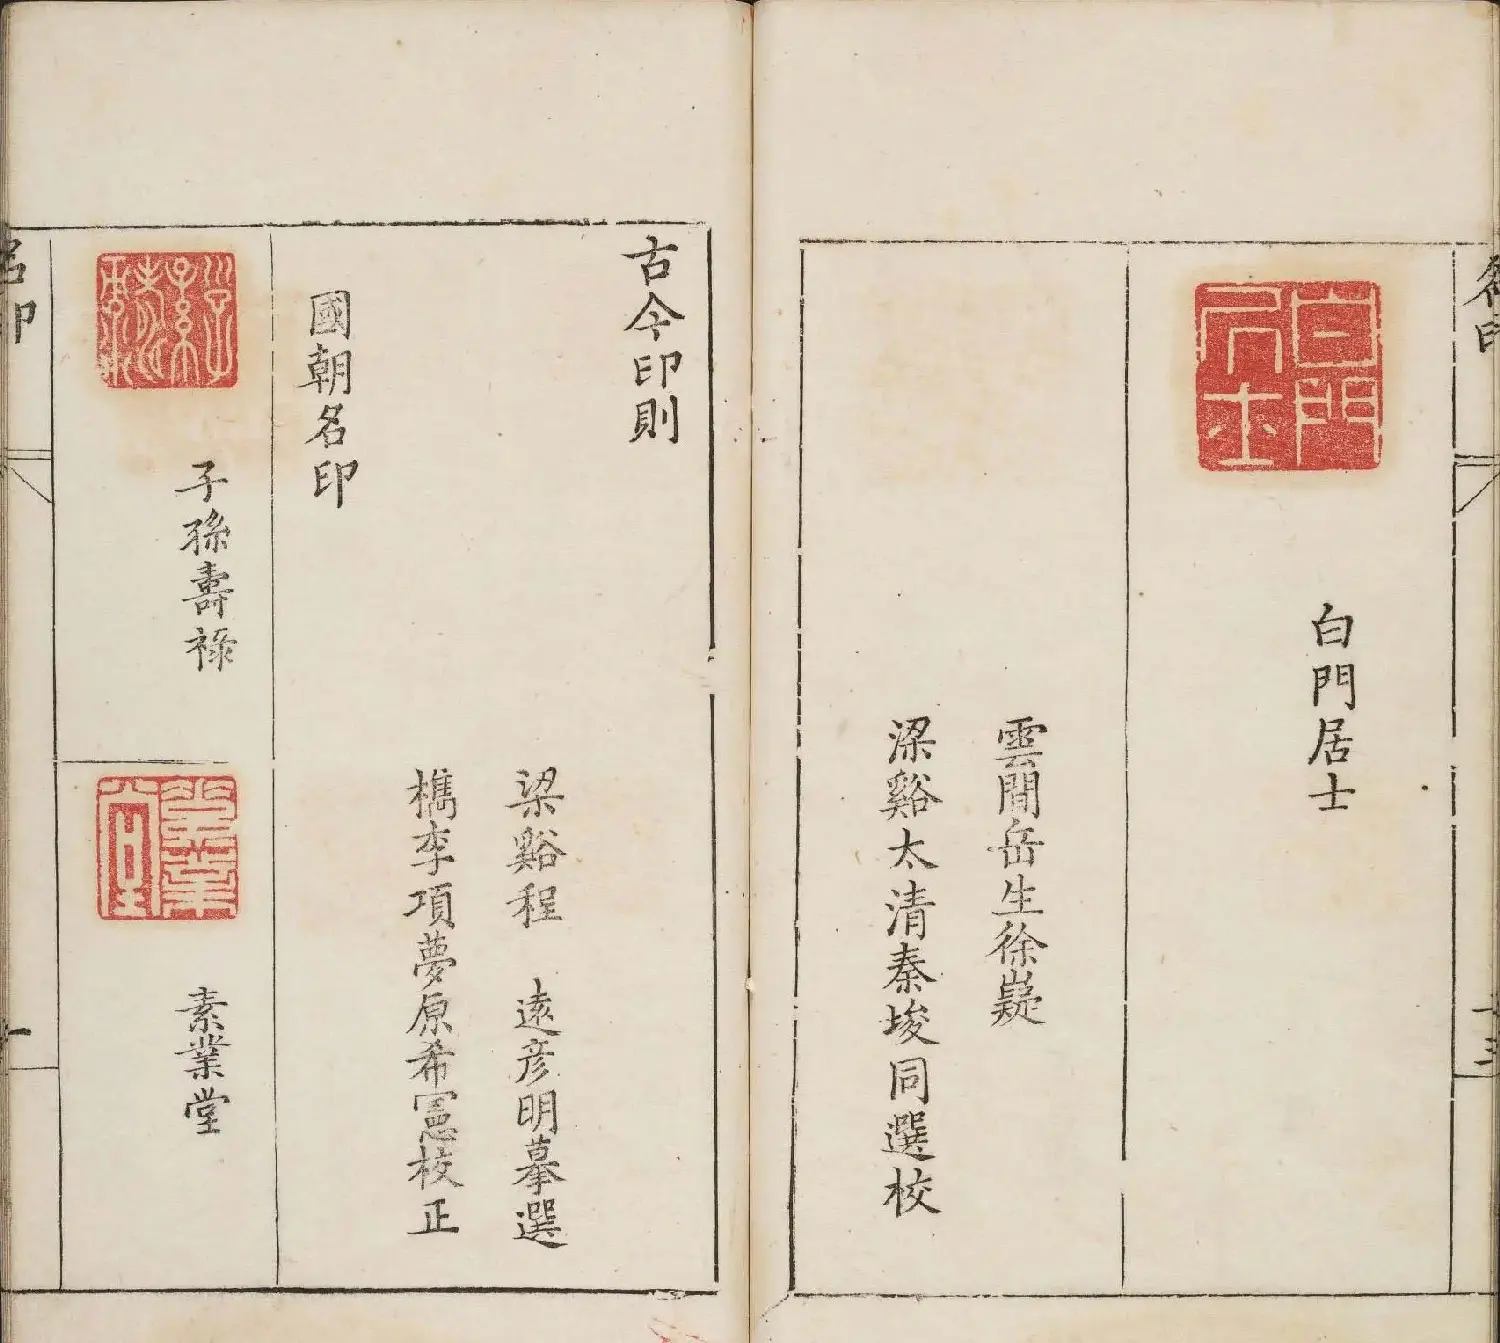 白門居士
白門居士
雲間岳生徐嶷
梁谿太清秦埈同選校
十三
古今印則
梁谿程　遠彦明摹選
檇李項夢原希憲校正
國朝名印
子孫壽祿
素業堂
素業堂
名印
一